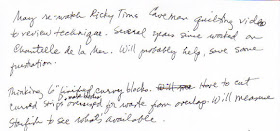 May re-watch Ricky Tims Caveman quilting video
to review technique. Several years since worked on
Chantelle de la Mer. Will probably help, save some
frustration.
Thinking 6" finished curvy blocks. Will Have to cut
curved strips oversized for waste from overlap. Will measure
Starfish to see what's available.